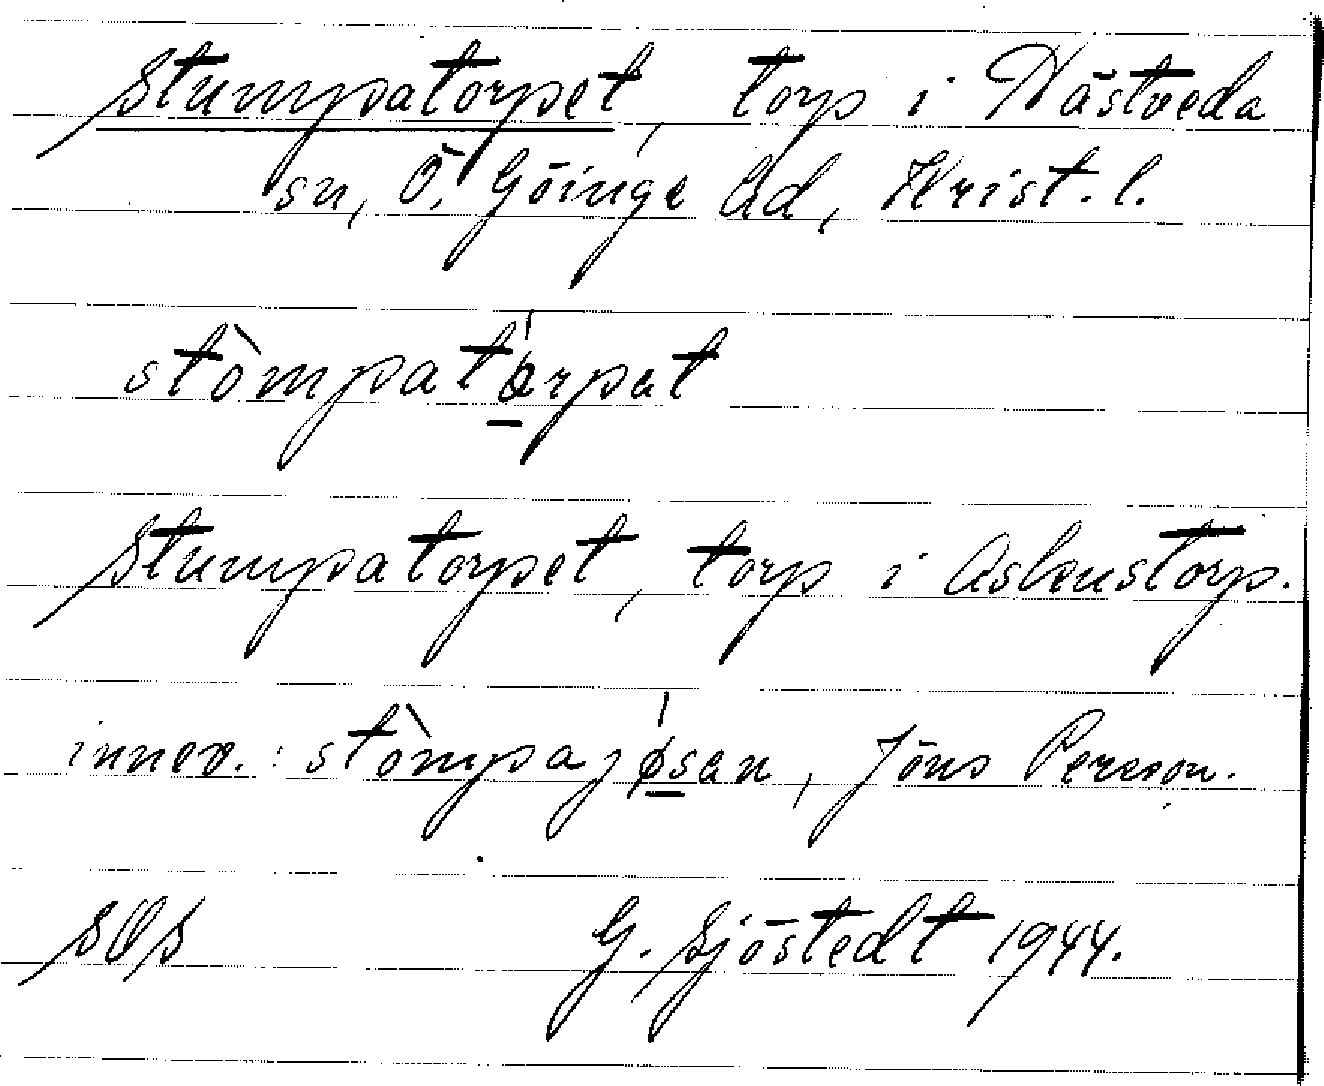 Stumpatorpet, torp i Hästveda
sn, Ö. Göinge hd, Krist. l.
stòmpatårpat
Stumpatorpet, torp i Askenstorp.
innev.: stòmpajøsan, Jöns Person.
SOS G. Sjöstedt 1944.